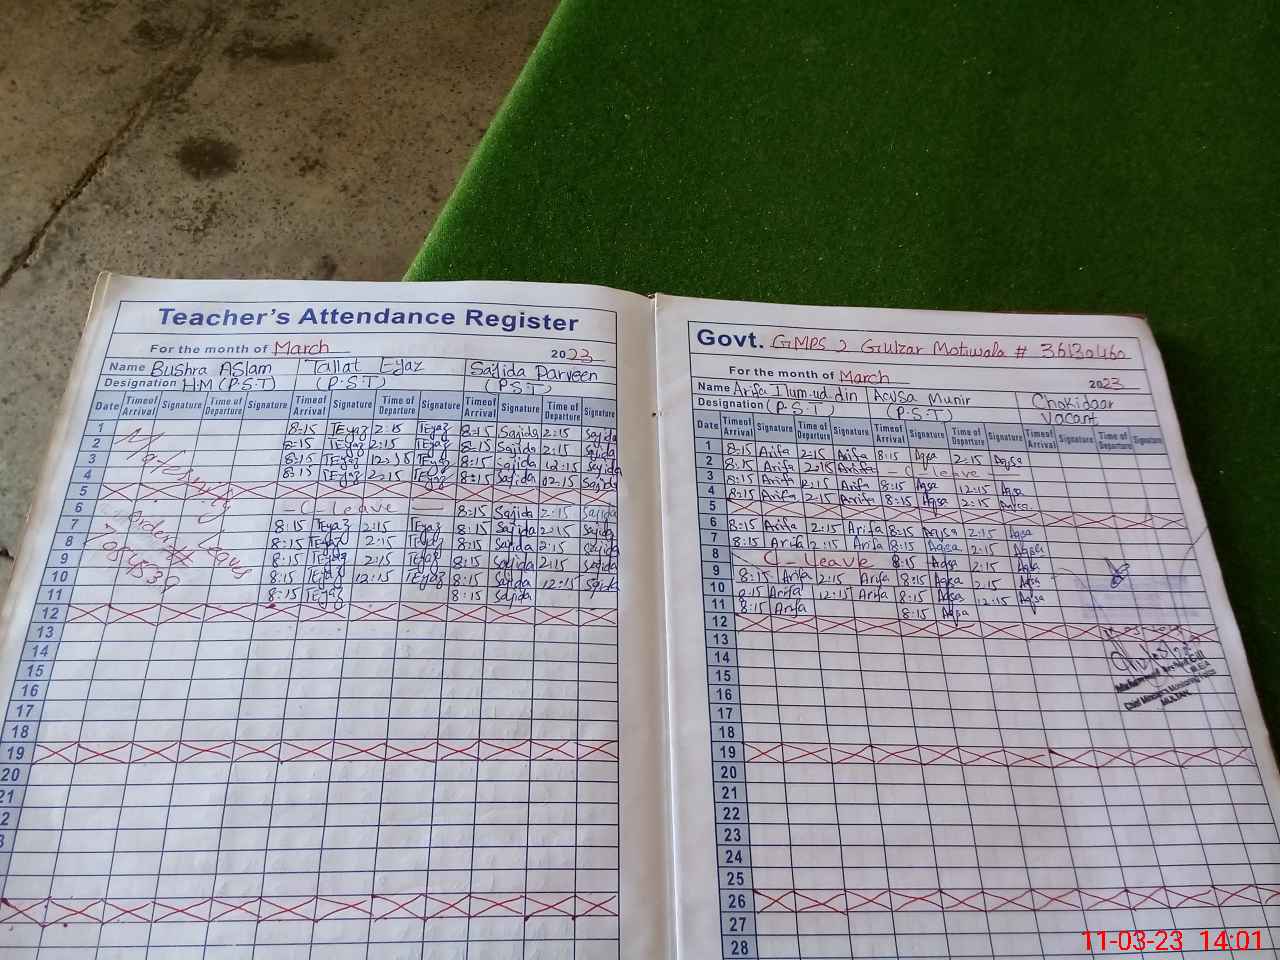 Teacher's Attendance Register
For the month of March 2023
Name Bushra ASlam Tallat EJaz Sajida Parveen
Designation H.M (P.S.T) (P.S.T) (P.S.T)
Date Time of Arrival Signature Time of Departure Signature Time of Arrival Signature Time of Departure Signature Time of Arrival Signature Time of Departure Signature
1 8-15 TEjaz 2:15 TEjaz 8:15 Sajida 2:15 Sajida
2 8:15 TEjaz 2:15 TEjaz 8:15 Sajida 2:15 Sajida
3 8:15 TEjaz 12:15 TEjaz 8:15 Sajida 12:15 Sajida
4 8:15 TEjaz 2:15 TEjaz 8:15 Sajida 02:15 Sajida
5
6 -C-Leave- 8:15 Sajida 2:15 Sajida
7 8:15 TEjaz 2:15 TEjaz 8:15 Sajida 2:15 Sajida
8 8:15 TEjaz 2:15 TEjaz 8:15 Sajida 2:15 Sajida
9 8:15 TEjaz 2:15 TEjaz 8:15 Sajida 2:15 Sajida
10 8:15 TEjaz 12:15 TEjaz 8:15 Sajida 12:15 Sajida
11 8:15 TEjaz 8:15 Sajida
12
13
14
15
16
17
18
19
20
21
2
3
Maternity
Leave
Order #
Govt. GMPS 2 Gulzar Motiwala # 36130460
For the month of March 2023
Name Arifa Ilum.ud.din Aqsa Munir Chokidaar
Designation (P.S.T) (P.S.T) Vacant
Date Time of Arrival Signature Time of Departure Signature Time of Arrival Signature Time of Departure Signature Time of Arrival Signature Time of Departure Signature
1 8:15 Arifa 2:15 Arifa 8:15 Aqsa 2:15 Aqsa
2 8:15 Arifa 2:15 Arifa -C-leave-
3 8:15 Arifa 2:15 Arifa 8:15 Aqsa 12:15 Aqsa
4 8:15 Arifa 2:15 Arifa 8:15 Aqsa 2:15 Aqsa
5
6 8:15 Arifa 2:15 Arifa 8:15 Aqsa 2:15 Aqsa
7 8:15 Arifa 2:15 Arifa 8:15 Aqsa 2:15 Aqsa
8 C-leave 8:15 Aqsa 2:15 Aqsa
9 8:15 Arifa 2:15 Arifa 8:15 Aqsa 2:15 Aqsa
10 8:15 Arifa 12:15 Arifa 8:15 Aqsa 12:15 Aqsa
11 8:15 Arifa 8:15 Aqsa
12
13
14
15
16
17
18
19
20
21
22
23
24
25
26
27
28
MULTAN
11-03-23 14:01